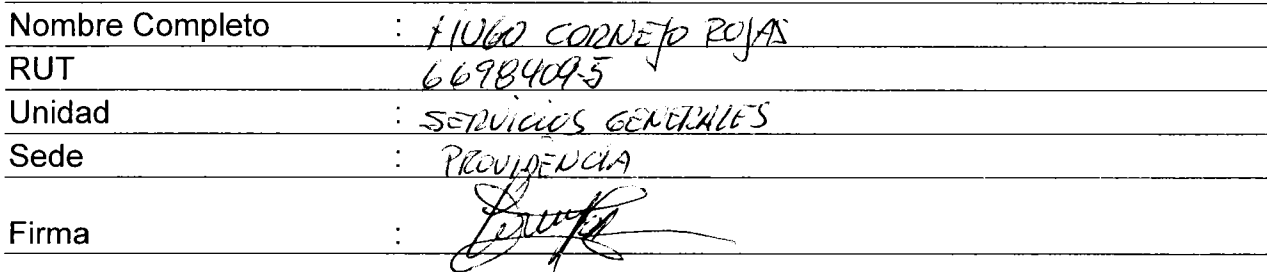 Nombre Completo : HUGO CORNEJO ROJAS
RUT 6698409-5
Unidad : SERVICIOS GENERALES
Sede : PROVIDENCIA
Firma :